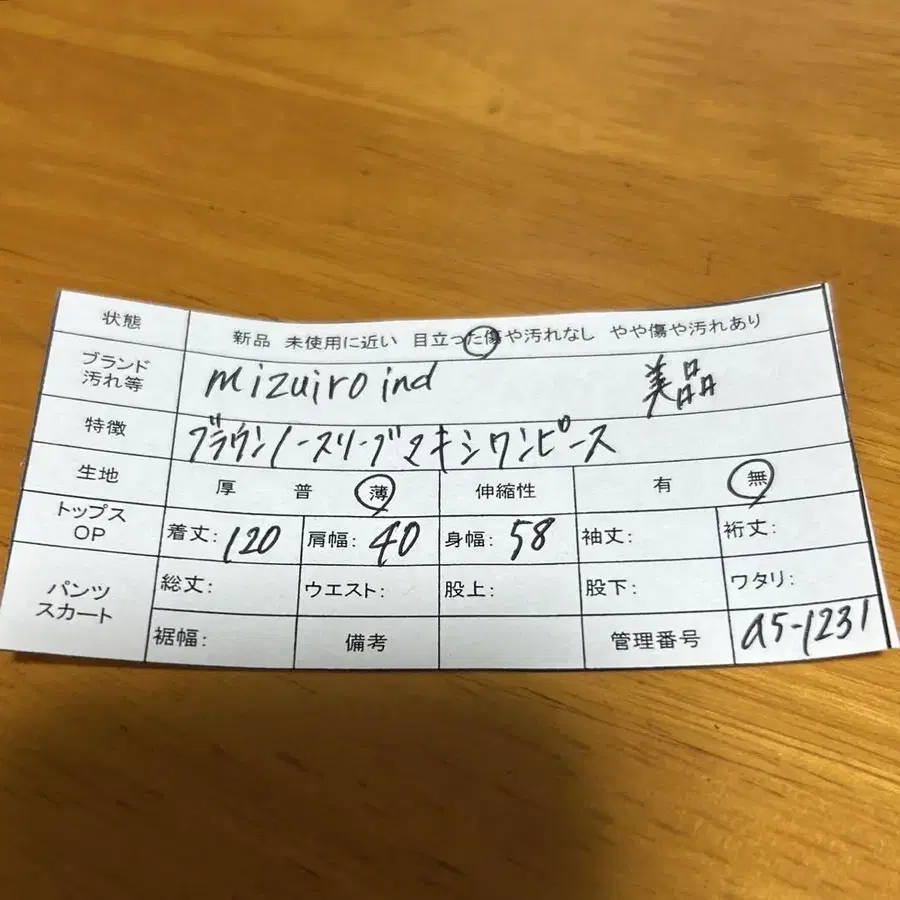 状態 新品 未使用に近い 目立った傷や汚れなし やや傷や汚れあり
ブランド 汚れ等 mizuiro ind 美品
特徴 ブラウンノースリーブマキシワンピース
生地 厚 普 薄 伸縮性 有 無
トップス OP 着丈: 120 肩幅: 40 身幅: 58 袖丈: 裄丈:
パンツ スカート 総丈: ウエスト: 股上: 股下: ワタリ:
裾幅: 備考 管理番号 a5-1231